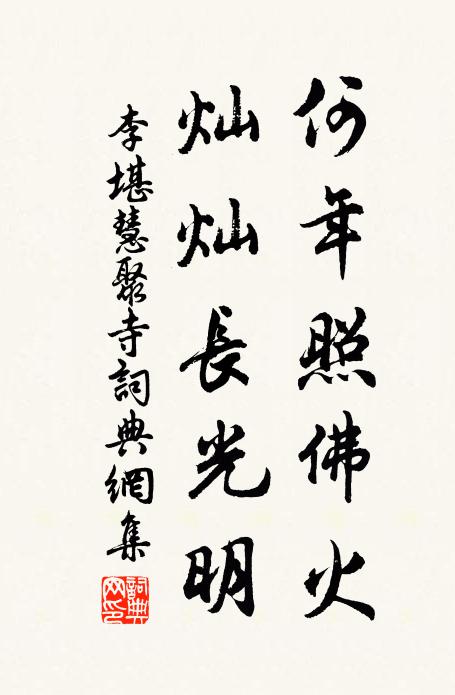 何年照佛火
灿灿長光明
李堪慧聚寺詞典網集
詞典網印